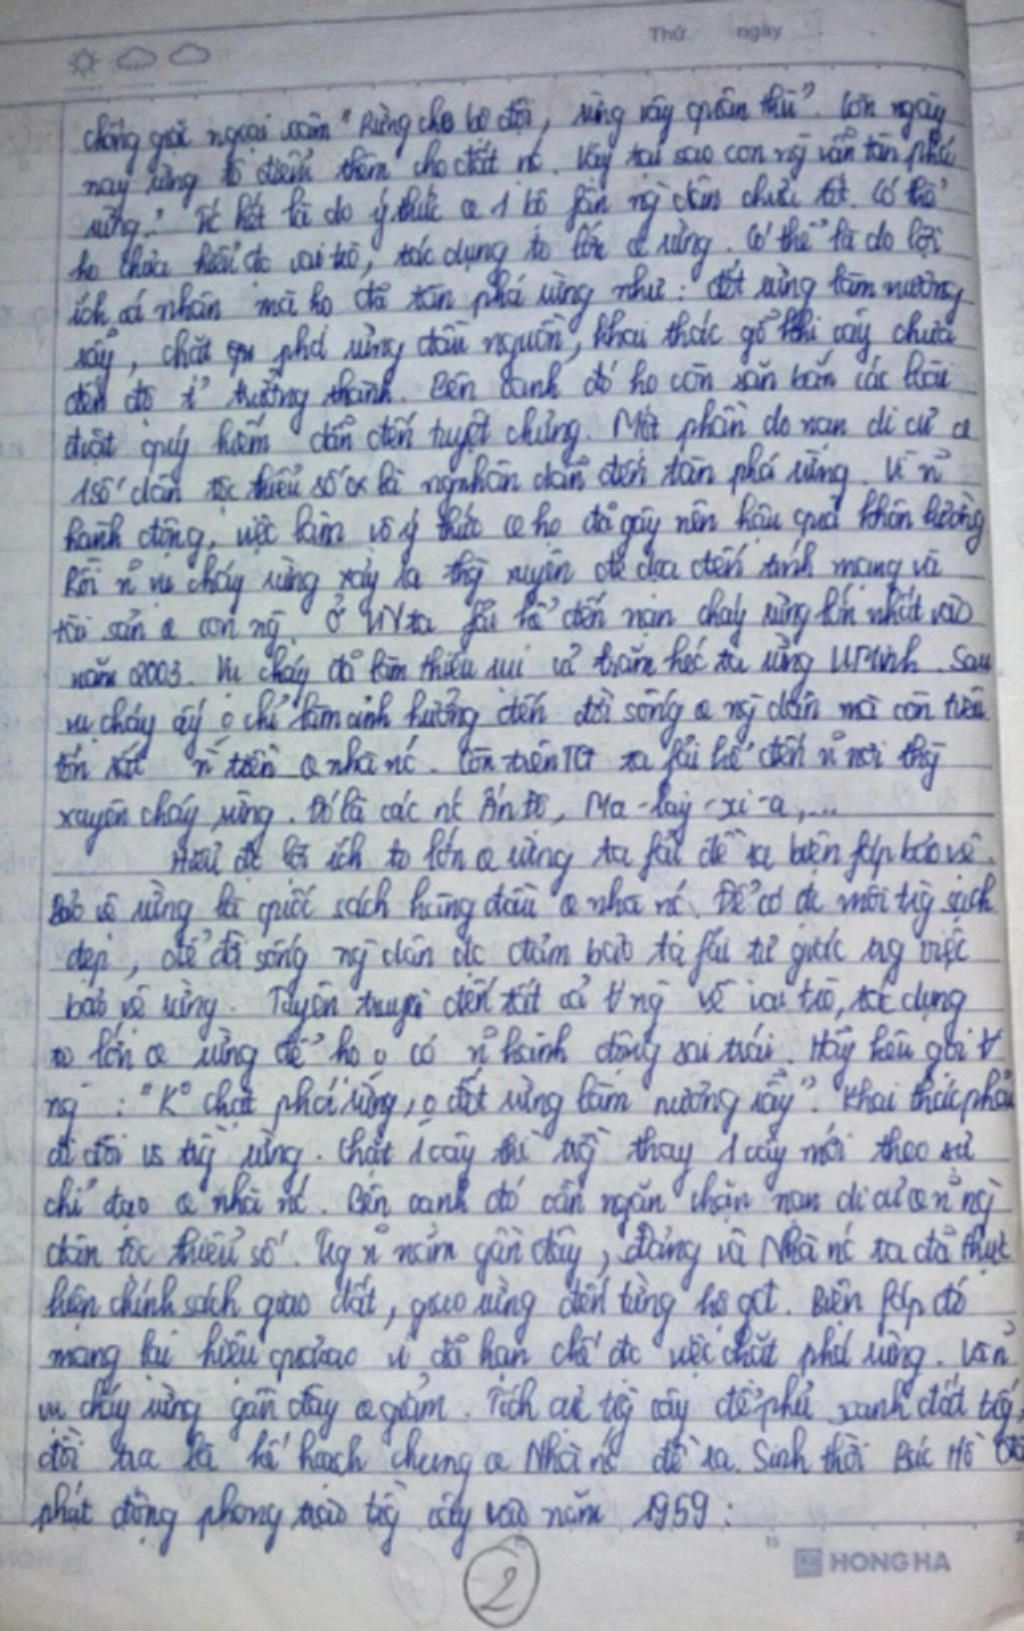 Thứ ngày
chống giặc ngoại xâm "Rừng che bộ đội, rừng vây quân thù". Còn ngày
nay rừng tô điểm thêm cho đất nc. Vậy tại sao con ng vẫn tàn phá
rừng? Tc hết là do ý thức 1 bộ fận ng dân chưa tốt. Có thể
họ chưa hiểu đc vai trò, tác dụng to lớn rừng. Có thể là do lợi
ích cá nhân mà họ đã tàn phá rừng như: đốt rừng làm nương
rẫy, chặt phá rừng đầu nguồn, khai thác gỗ khi cây chưa
đến độ trưởng thành. Bên cạnh đó họ còn săn bắn các loài
động vật quý hiếm dẫn đến tuyệt chủng. Một phần do nạn di cư
1 số dân tộc thiểu số là ng nhân dẫn đến tàn phá rừng. Vì n~
hành động, việc làm vô ý thức họ đã gây nên hậu quả khôn lường
Rồi n~ vụ cháy rừng xảy ra thg xuyên đe dọa đến tính mạng và
tài sản con ng. Ở VN ta fải kể đến nạn cháy rừng lớn nhất vào
năm 2003. Vụ cháy đã làm thiêu rụi cả trăm héc ta rừng U Minh. Sau
vụ cháy ấy o chỉ làm ảnh hưởng đến đời sống ng dân mà còn tiêu
tốn rất n~ tiền nhà nc. Còn trên TG ta fải kể đến n~ nơi thg
xuyên cháy rừng. Đó là các nc Ấn Độ, Ma-lay-xi-a,...
Hiểu đc lợi ích to lớn rừng ta fải đề ra biện fáp bảo vệ.
Bảo vệ rừng là quốc sách hàng đầu nhà nc. Để có đc môi trg sạch
đẹp, để đời sống ng dân đc đảm bảo ta fải tự giác trg việc
bảo vệ rừng. Tuyên truyền đến tất cả ∀ ng về vai trò, tác dụng
to lớn rừng để họ o có n~ hành động sai trái. Hãy kêu gọi ∀
ng: "K° chặt phá rừng, o đốt rừng làm nương rẫy". Khai thác phải
đi đôi vs trg rừng. Chặt 1 cây thì trg thay 1 cây mới theo sự
chỉ đạo nhà nc. Bên cạnh đó cần ngăn chặn nạn di cư n~ ng
dân tộc thiểu số. Trg n~ năm gần đây, Đảng và Nhà nc ta đã thực
hiện chính sách giao đất, giao rừng đến từng hộ gđ. Biện fáp đó
mang lại hiệu quả cao vì đã hạn chế đc việc chặt phá rừng.
vụ cháy rừng gần đây giảm. Tích cực trg cây để phủ xanh đất trg,
đồi trọc là kế hoạch chung Nhà nc đề ra. Sinh thời Bác Hồ đã
phát động phong trào trg cây vào năm 1959:
HONG HA
2